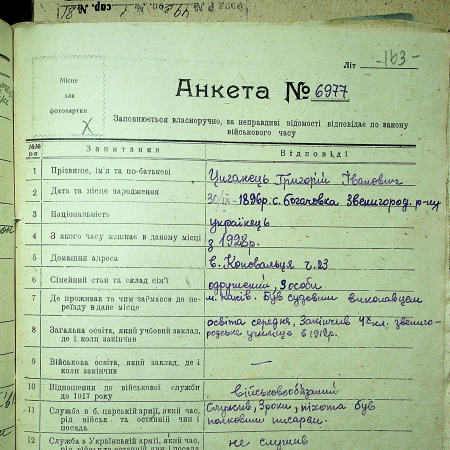 Літ -163-
Місце
для
фотокартки
Анкета № 6977
Заповнюється власноручно, за неправдиві відомості відповідає по закону
військового часу
№№ п-п Запитання Відповіді
1 Прізвище, ім'я та по-батькові Циганець Григорій Іванович
2 Дата та місце народження 30/IX-1896р. с. Богачовка Звенигород. р-ну
3 Національність українець
4 З якого часу мешкає в даному місці з 1928р.
5 Домашня адреса в. Коновальця ч. 23
6 Сімейний стан та склад сім'ї одружений, 3 особи
7 Де проживав та чим займався до переїзду в дане місце м. Канів. Був судовим виконавцем
8 Загальна освіта, який учбовий заклад, де і коли закінчив освіта середня, Закінчив 4х кл. звенигородське училище в 1912р.
9 Військова освіта, який заклад, де і коли закінчив —
10 Відношення до військової служби до 1917 року військовообов'язаний
11 Служба в б. царській армії, який час, рід військ та останній чин і посада Служив, 3 роки, піхота був полковим писарем.
12 Служба в Українській армії, який час, не служив